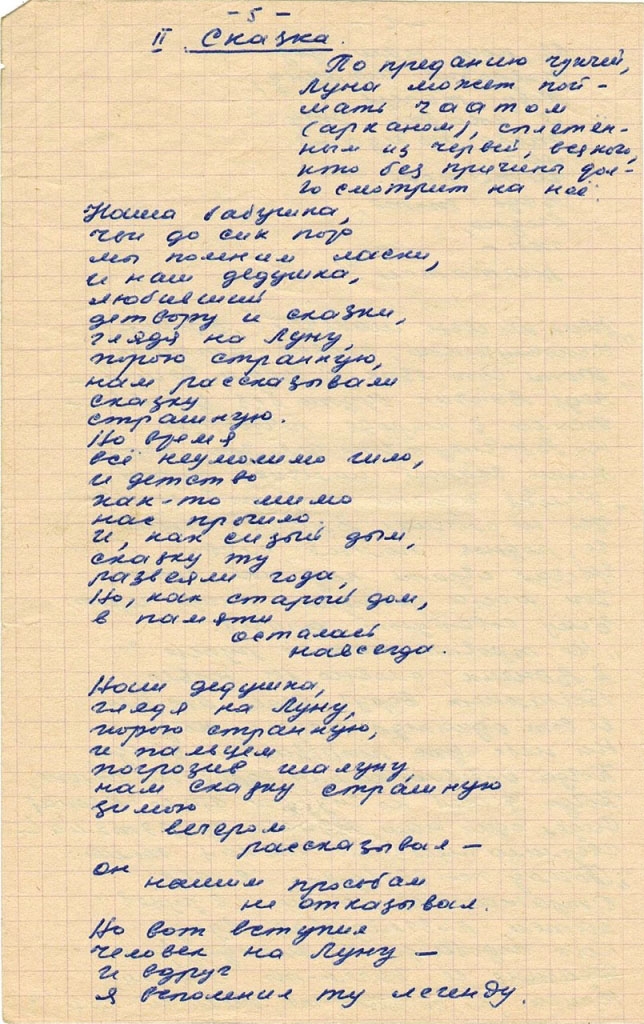 - 5 -
II Сказка.
По преданию чукчей,
Луна может пой-
мать чаатом
(арканом), сплетен-
ным из червей, всякого,
кто без причины дол-
го смотрит на неё.
Наша бабушка,
чьи до сих пор
мы помним ласки,
и наш дедушка,
любивший
детвору и сказки,
глядя на Луну,
порою странную,
нам рассказывали
сказку
страшную.
Но время
всё неумолимо шло,
и детство
как-то мимо
нас прошло.
И, как сизый дым,
сказку ту
развеяли года,
Но, как старый дом,
в памяти
осталась
навсегда.
Наш дедушка,
глядя на Луну,
порою странную,
и пальцем
погрозив шалуну,
нам сказку страшную
зимою
вечером
рассказывал —
он
нашим просьбам
не отказывал.
Но вот вступил
человек на Луну —
и вдруг
я вспомнил ту легенду.